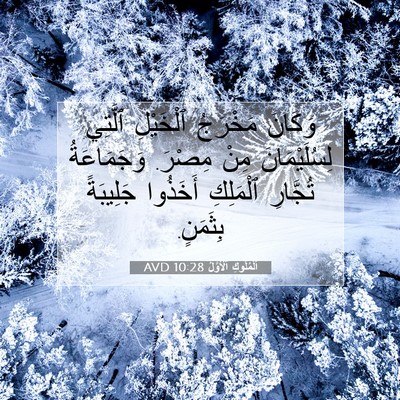 وَكَانَ مَخْرَجُ ٱلْخَيْلِ ٱلَّتِي
لِسُلَيْمَانَ مِنْ مِصْرَ. وَجَمَاعَةُ
تُجَّارِ ٱلْمَلِكِ أَخَذُوا جَلِيبَةً
بِثَمَنٍ.
اَلْمُلُوكِ ٱلْأَوَّلُ 10:28 AVD